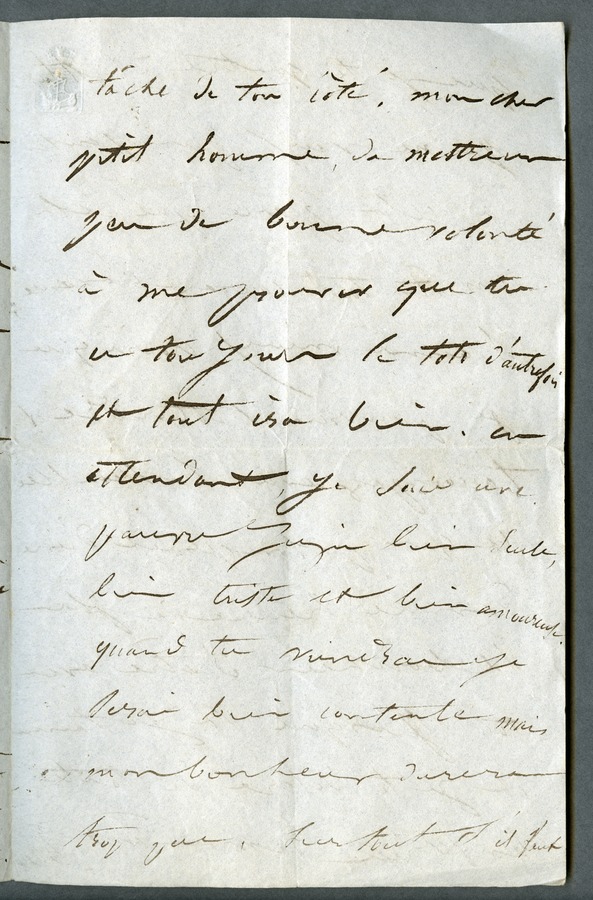 tâche de ton côté, mon cher
petit homme, de mettre un
peu de bonne volonté
à me prouver que tu
es toujours le toto d'autrefois
et tout ira bien. en
attendant, je suis une
pauvre Juju bien seule,
bien triste et bien amoureuse.
quand tu viendras je
serai bien contente mais
mon bonheur durera
trop peu. surtout s'il faut